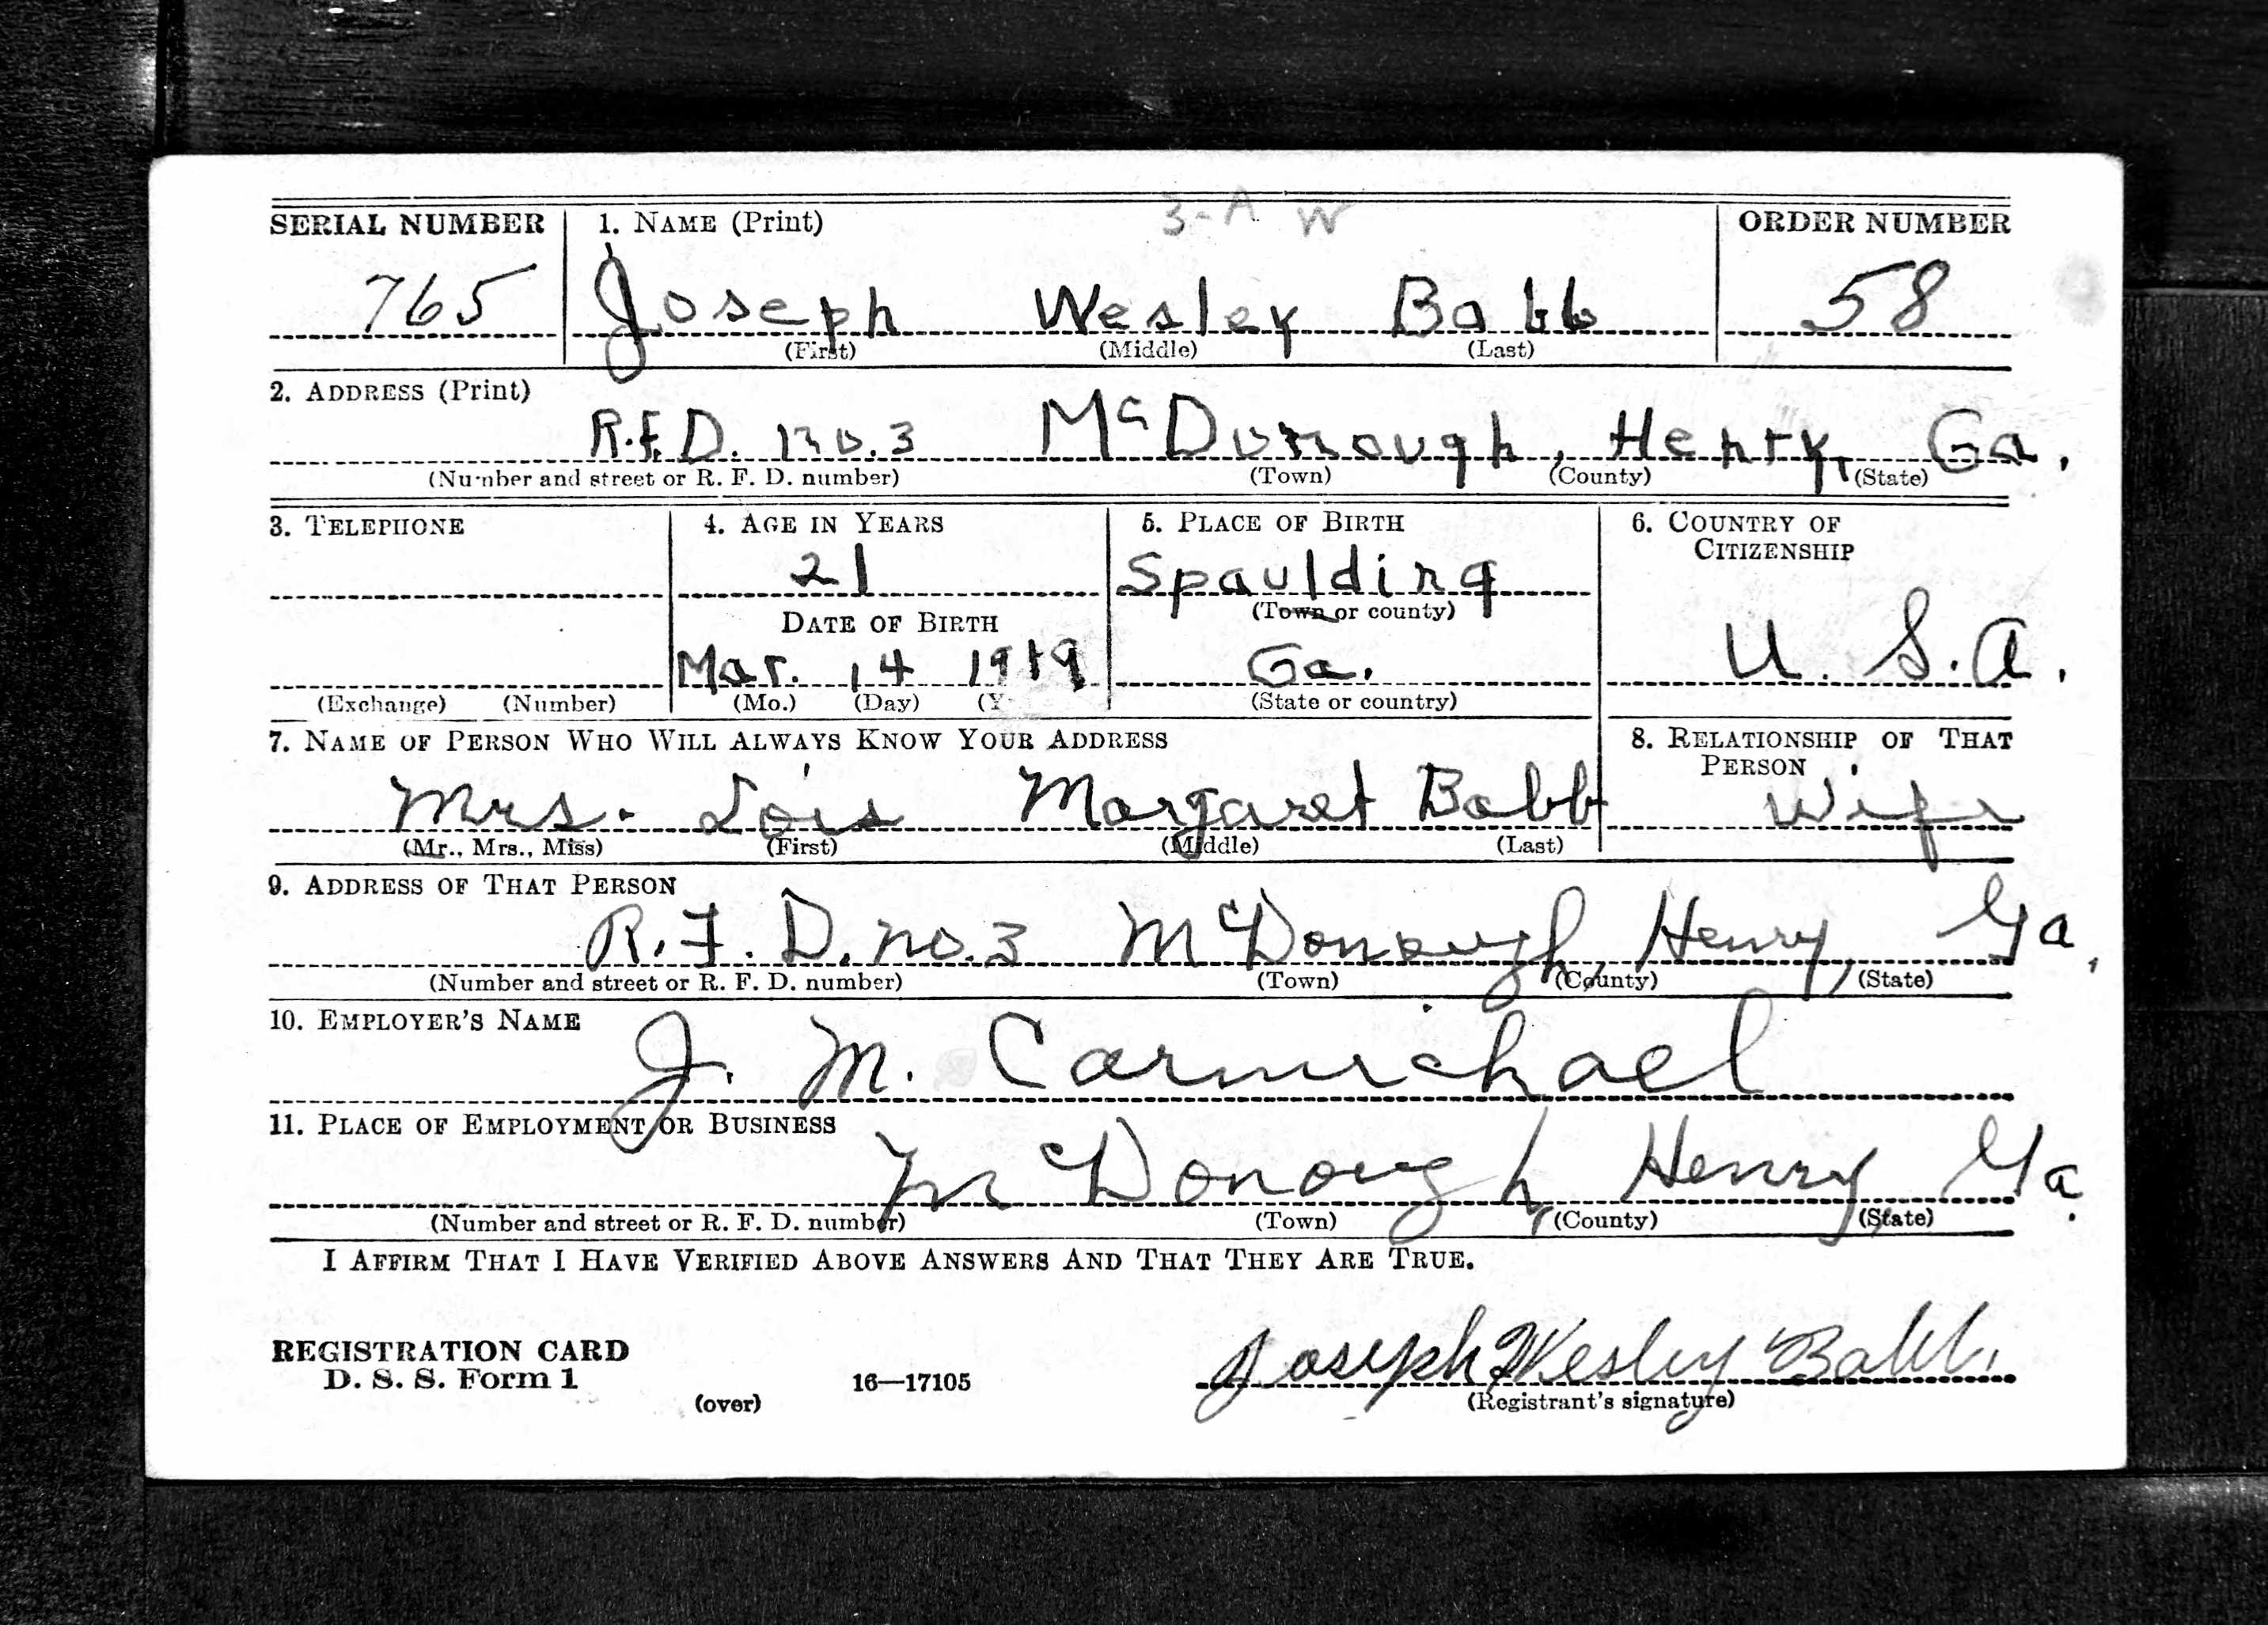 3-A W
SERIAL NUMBER 1. NAME (Print) ORDER NUMBER
765 Joseph Wesley Babb 58
(First) (Middle) (Last)
2. ADDRESS (Print)
R.F.D. no. 3 McDonough, Henry, Ga.
(Number and street or R. F. D. number) (Town) (County) (State)
3. TELEPHONE 4. AGE IN YEARS 5. PLACE OF BIRTH 6. COUNTRY OF
CITIZENSHIP
21 Spaulding
DATE OF BIRTH (Town or county)
Mar. 14 1919 Ga. U. S. A.
(Exchange) (Number) (Mo.) (Day) (Y (State or country)
7. NAME OF PERSON WHO WILL ALWAYS KNOW YOUR ADDRESS 8. RELATIONSHIP OF THAT
PERSON
Mrs. Lois Margaret Babb Wife
(Mr., Mrs., Miss) (First) (Middle) (Last)
9. ADDRESS OF THAT PERSON
R. F. D. no. 3 McDonough, Henry, Ga.
(Number and street or R. F. D. number) (Town) (County) (State)
10. EMPLOYER'S NAME
J. M. Carmichael
11. PLACE OF EMPLOYMENT OR BUSINESS
McDonough, Henry, Ga.
(Number and street or R. F. D. number) (Town) (County) (State)
I AFFIRM THAT I HAVE VERIFIED ABOVE ANSWERS AND THAT THEY ARE TRUE.
REGISTRATION CARD
D. S. S. Form 1 16—17105 Joseph Wesley Babb.
(over) (Registrant's signature)